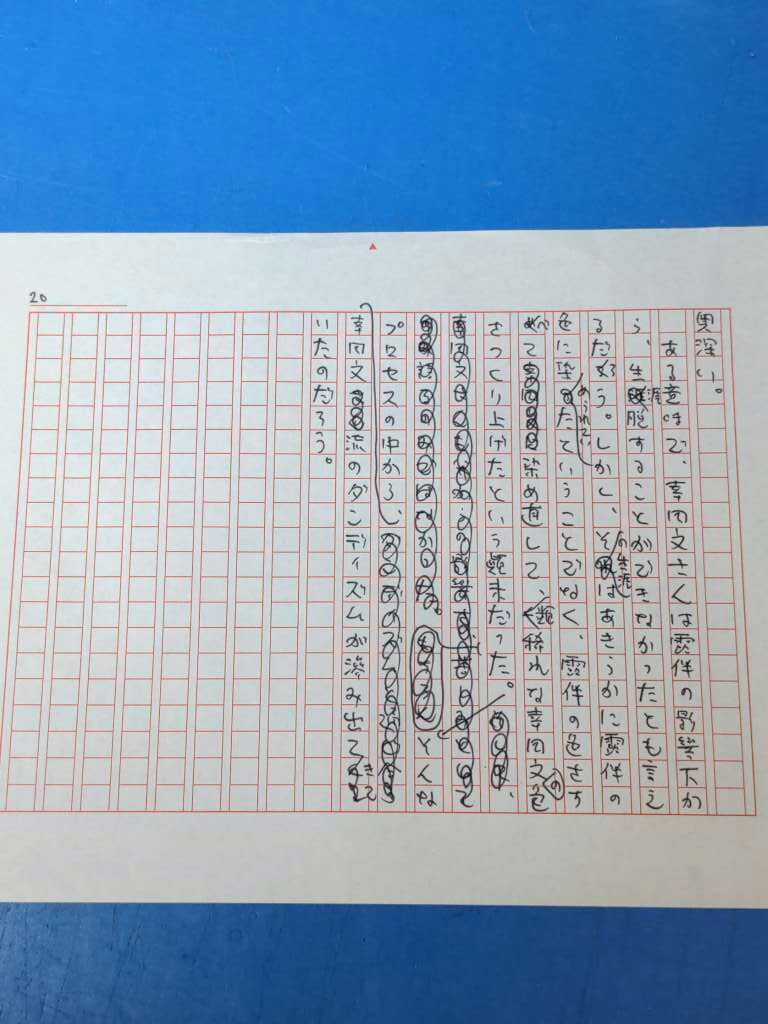 20
奥深い。
ある意味で、幸田文さんは露伴の影響下か
ら、生涯脱することができなかったとも言え
るだろう。しかし、その生涯はあきらかに露伴の
色に染められていたということでなく、露伴の色をす
べて染め直して、類稀れな幸田文の色
をつくり上げたという顛末だった。
そんな
プロセスの中から、
幸田文流のダンディズムが滲み出てきて
いたのだろう。